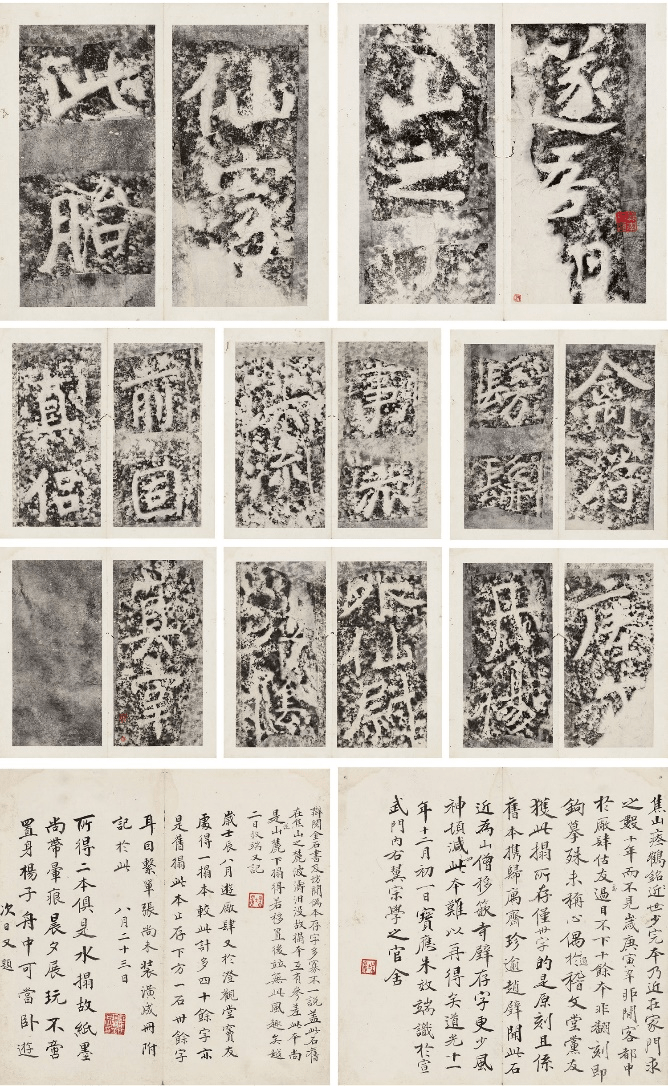 遂吾門
山之下
仙家
此胎
禽浮
事篆
洪流
前固
真侶
丹楊
外仙尉
江陰
真宰
焦山瘞鶴銘近世少完本乃近在家門求
之數十年而不見歲庚寅辛卯間客都中
於廠肆估友過目不下十餘本非翻刻即
鉤摹殊未稱心偶於稽文堂黨友
獲此搨所存僅卅字的是原刻且係
舊本攜歸寓齋珍逾趙璧聞此石
近為山僧移嵌竒壁存字更少風
神頓減此本難以再得矣道光十一
年十二月初一日寶應朱敔端識於宣
武門內右翼宗學之官舍
辨閱金石書及所閱偽本存字多寡不一說蓋此石舊
在焦山之麓波濤汨沒故搨本互有參差此本尚
是山麓下搨得若移置後並無此風趣矣越
二日敔端又記
歲壬辰八月遊廠肆又於澄觀堂寶友
處得一搨本較此計多四十餘字亦
是舊搨此本止存下方一石卅餘字
耳因繫單張尚未裝潢成冊附
記於此 八月二十三日
所得二本俱是水搨故紙墨
尚帶暈痕晨夕展玩不啻
置身楊子舟中可當臥遊
次日又題